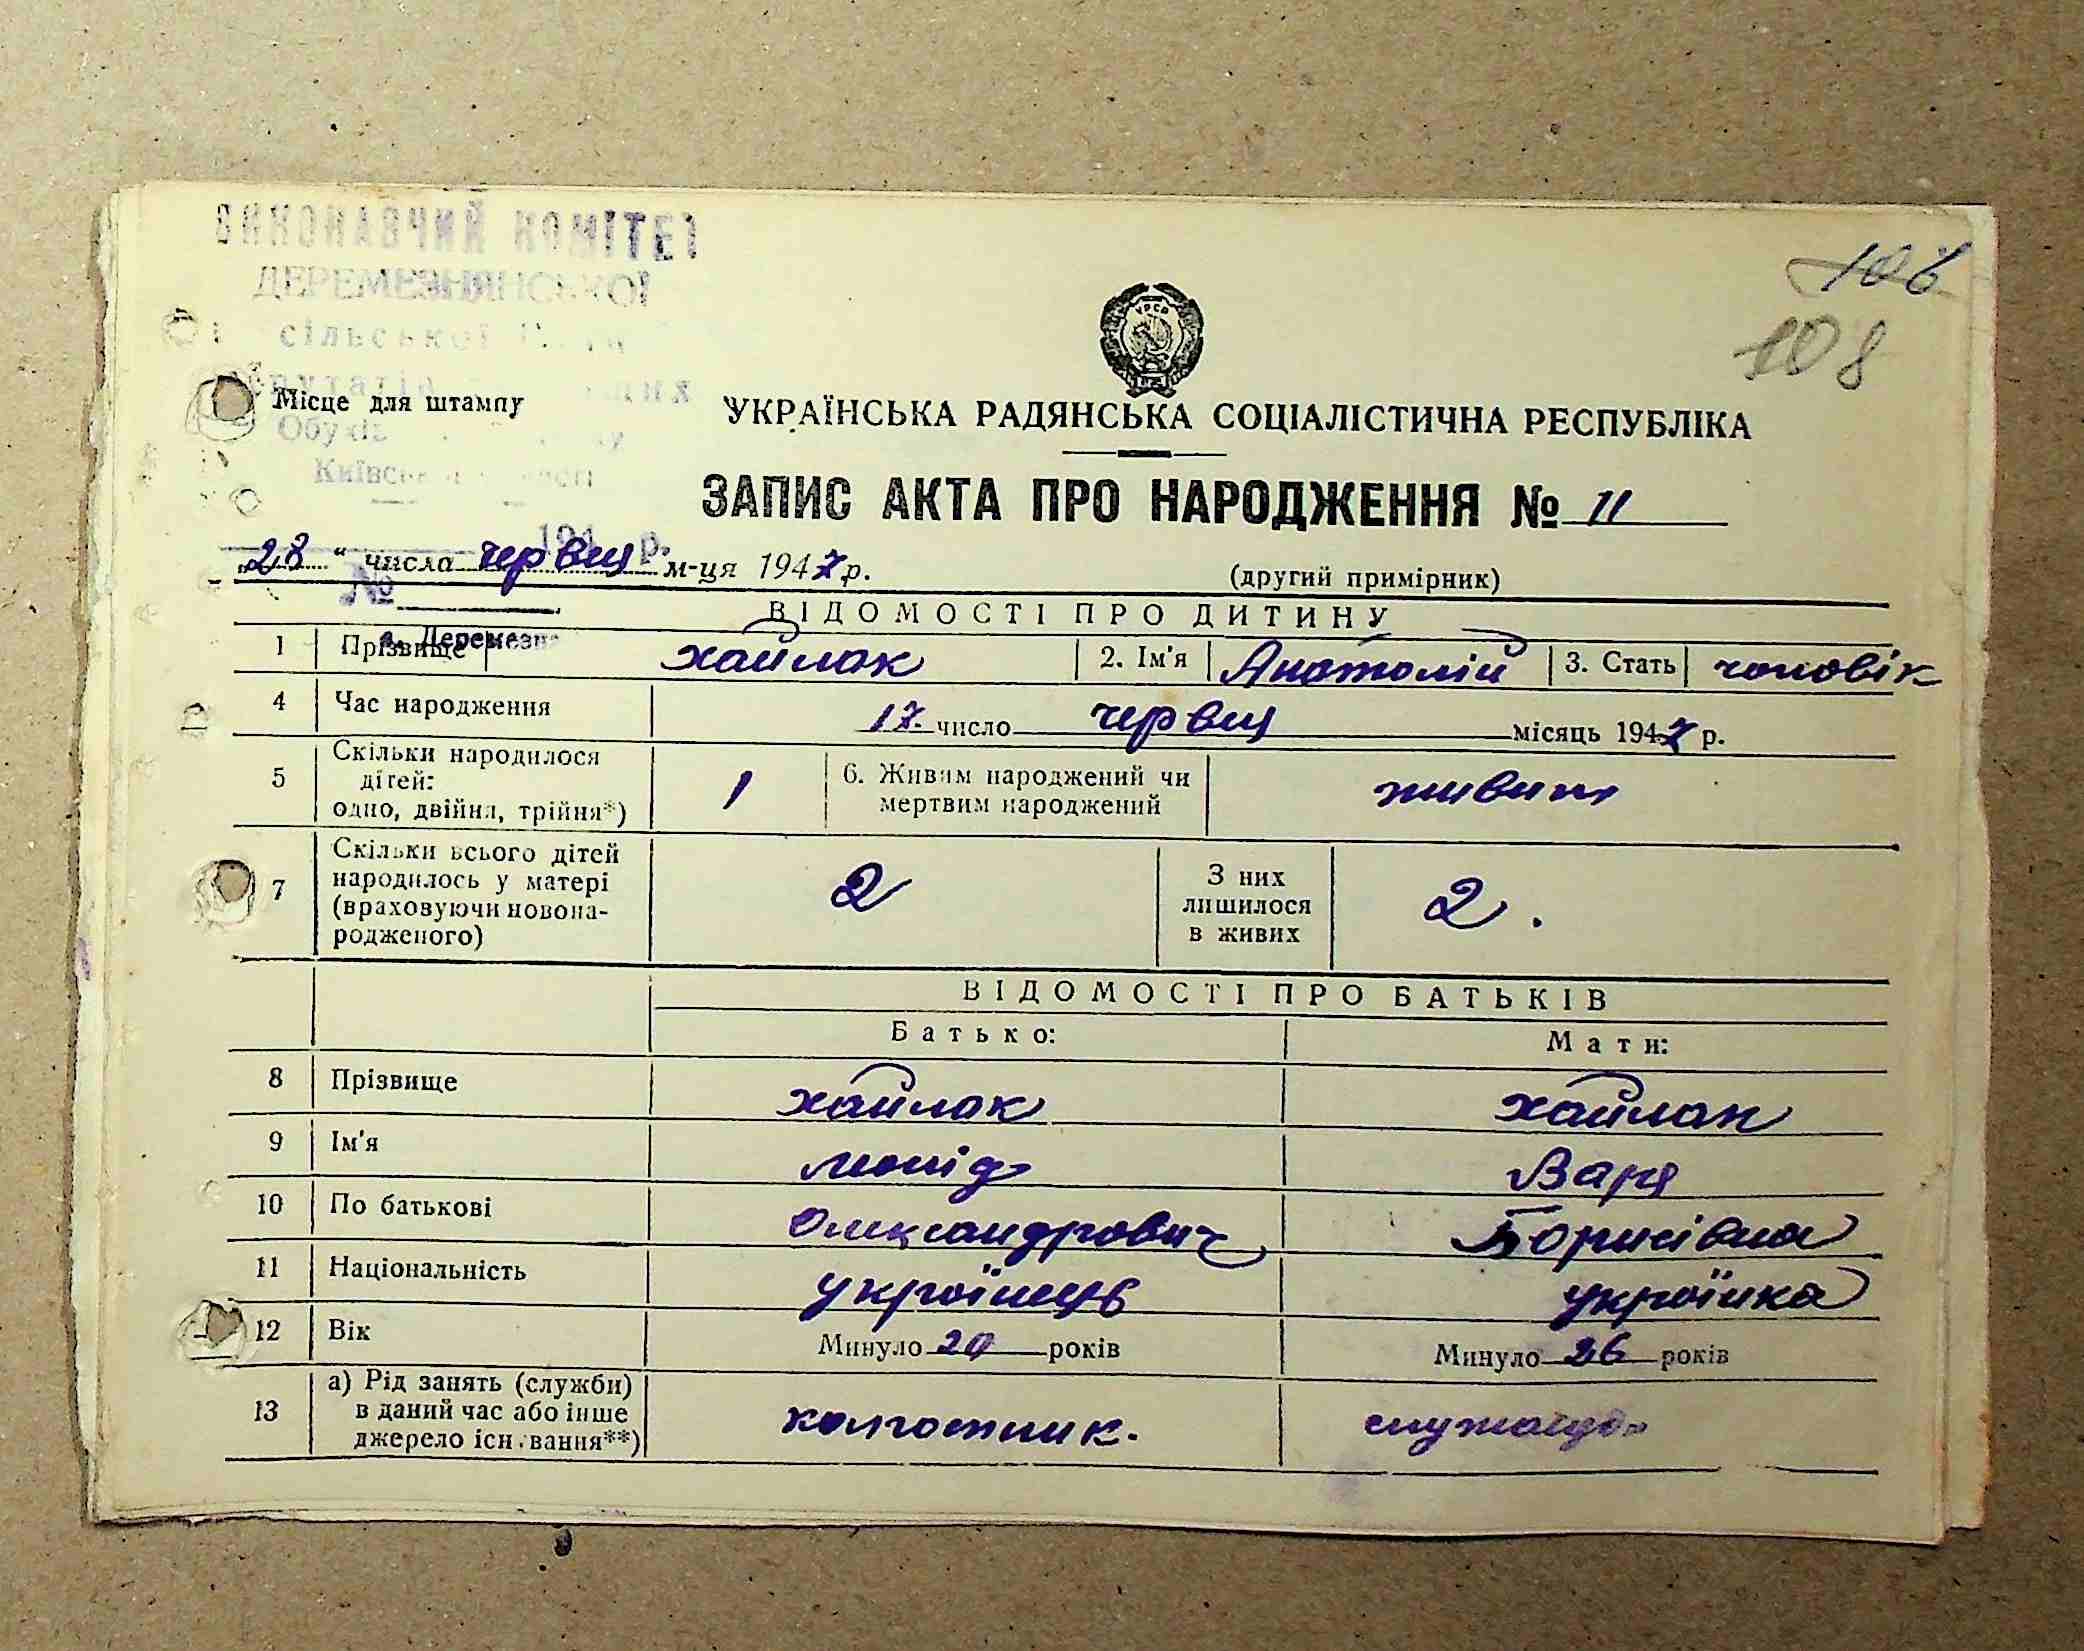 ВИКОНАВЧИЙ КОМІТЕТ
ДЕРЕМЕЗНЯНСЬКОЇ
сільської
Місце для штампу
106
108
УРСР
УКРАЇНСЬКА РАДЯНСЬКА СОЦІАЛІСТИЧНА РЕСПУБЛІКА
ЗАПИС АКТА ПРО НАРОДЖЕННЯ № 11
194 р.
„28“ числа червця м-ця 1947 р. (другий примірник)
№
с. Деремезна
ВІДОМОСТІ ПРО ДИТИНУ
1 Прізвище Хайлак 2. Ім'я Анатолій 3. Стать чоловік
4 Час народження 17 число червця місяць 1947 р.
5 Скільки народилося дітей: одно, двійня, трійня*) 1 6. Живим народжений чи мертвим народжений живим
7 Скільки всього дітей народилось у матері (враховуючи новонародженого) 2 З них лишилося в живих 2.
ВІДОМОСТІ ПРО БАТЬКІВ
Батько: Мати:
8 Прізвище Хайлак Хайлак
9 Ім'я Леонід Варя
10 По батькові Олександрович Борисівна
11 Національність українець українка
12 Вік Минуло 20 років Минуло 26 років
13 а) Рід занять (служби) в даний час або інше джерело існування**) колгосник. служащая